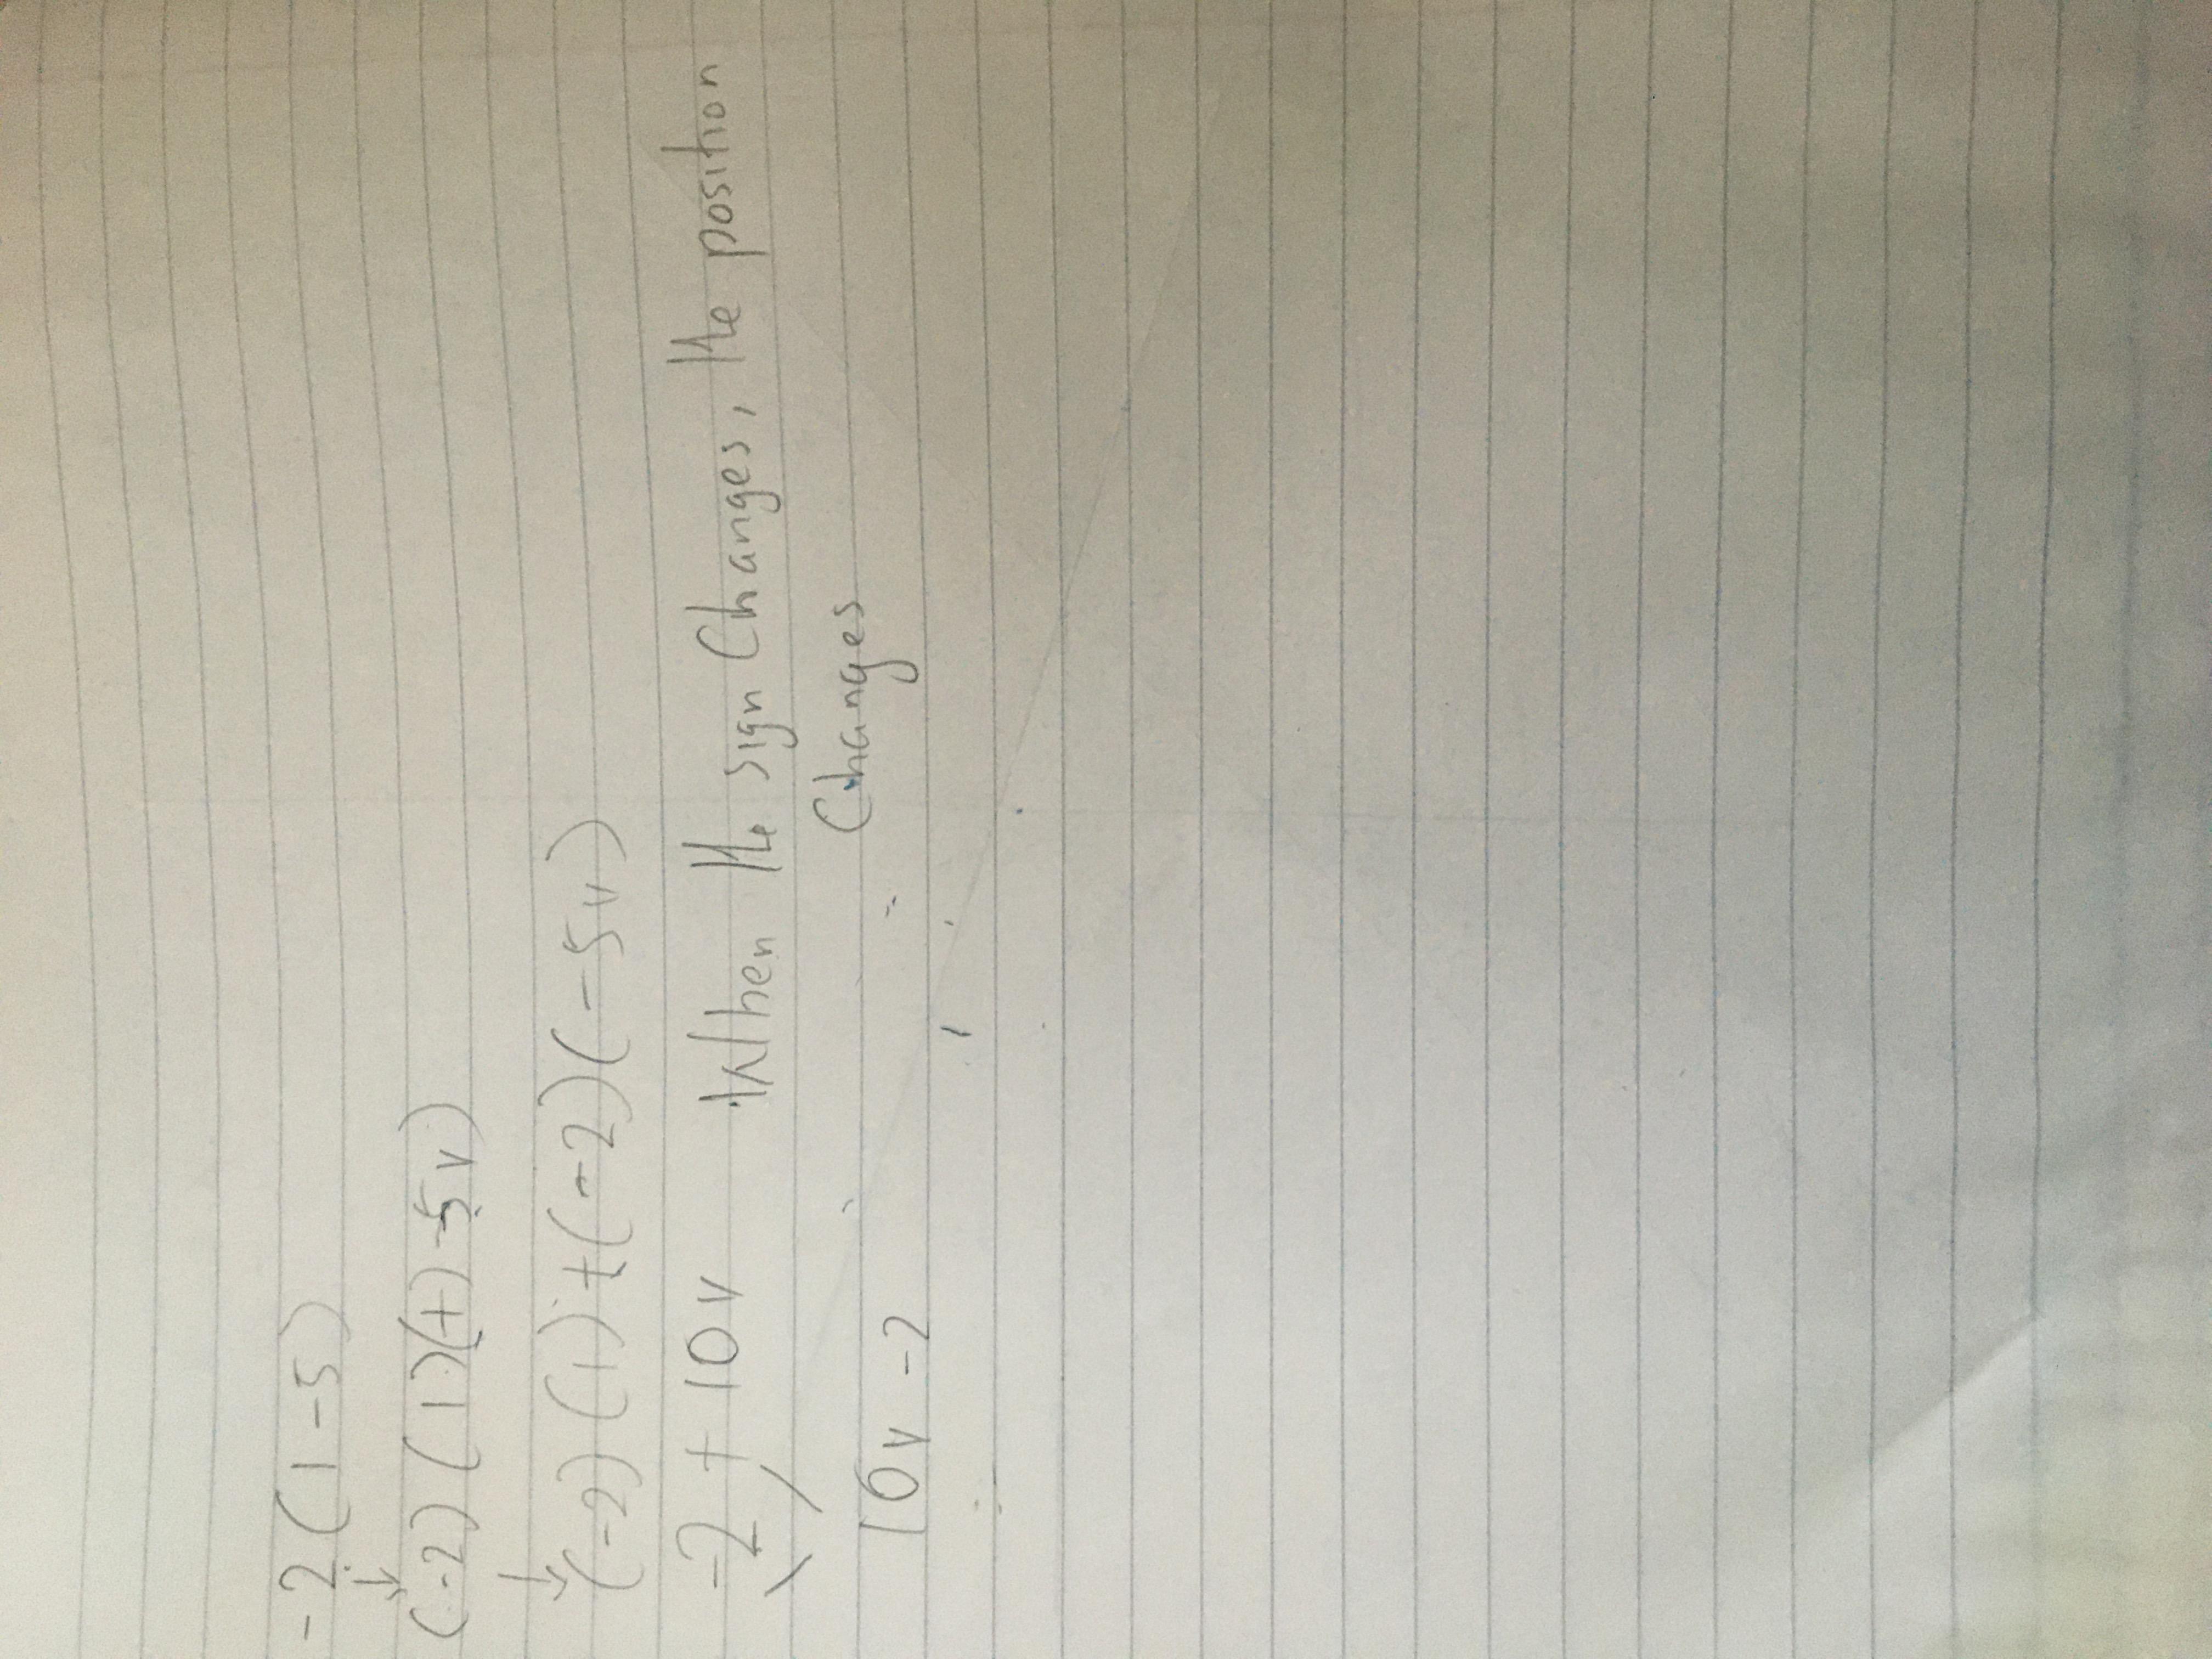 -2(1-5)
↓
(-2)(1)(+)-5v)
↓
(-2)(1)+(-2)(-5v)
-2+10v When the sign Changes, the position
Changes
10v-2